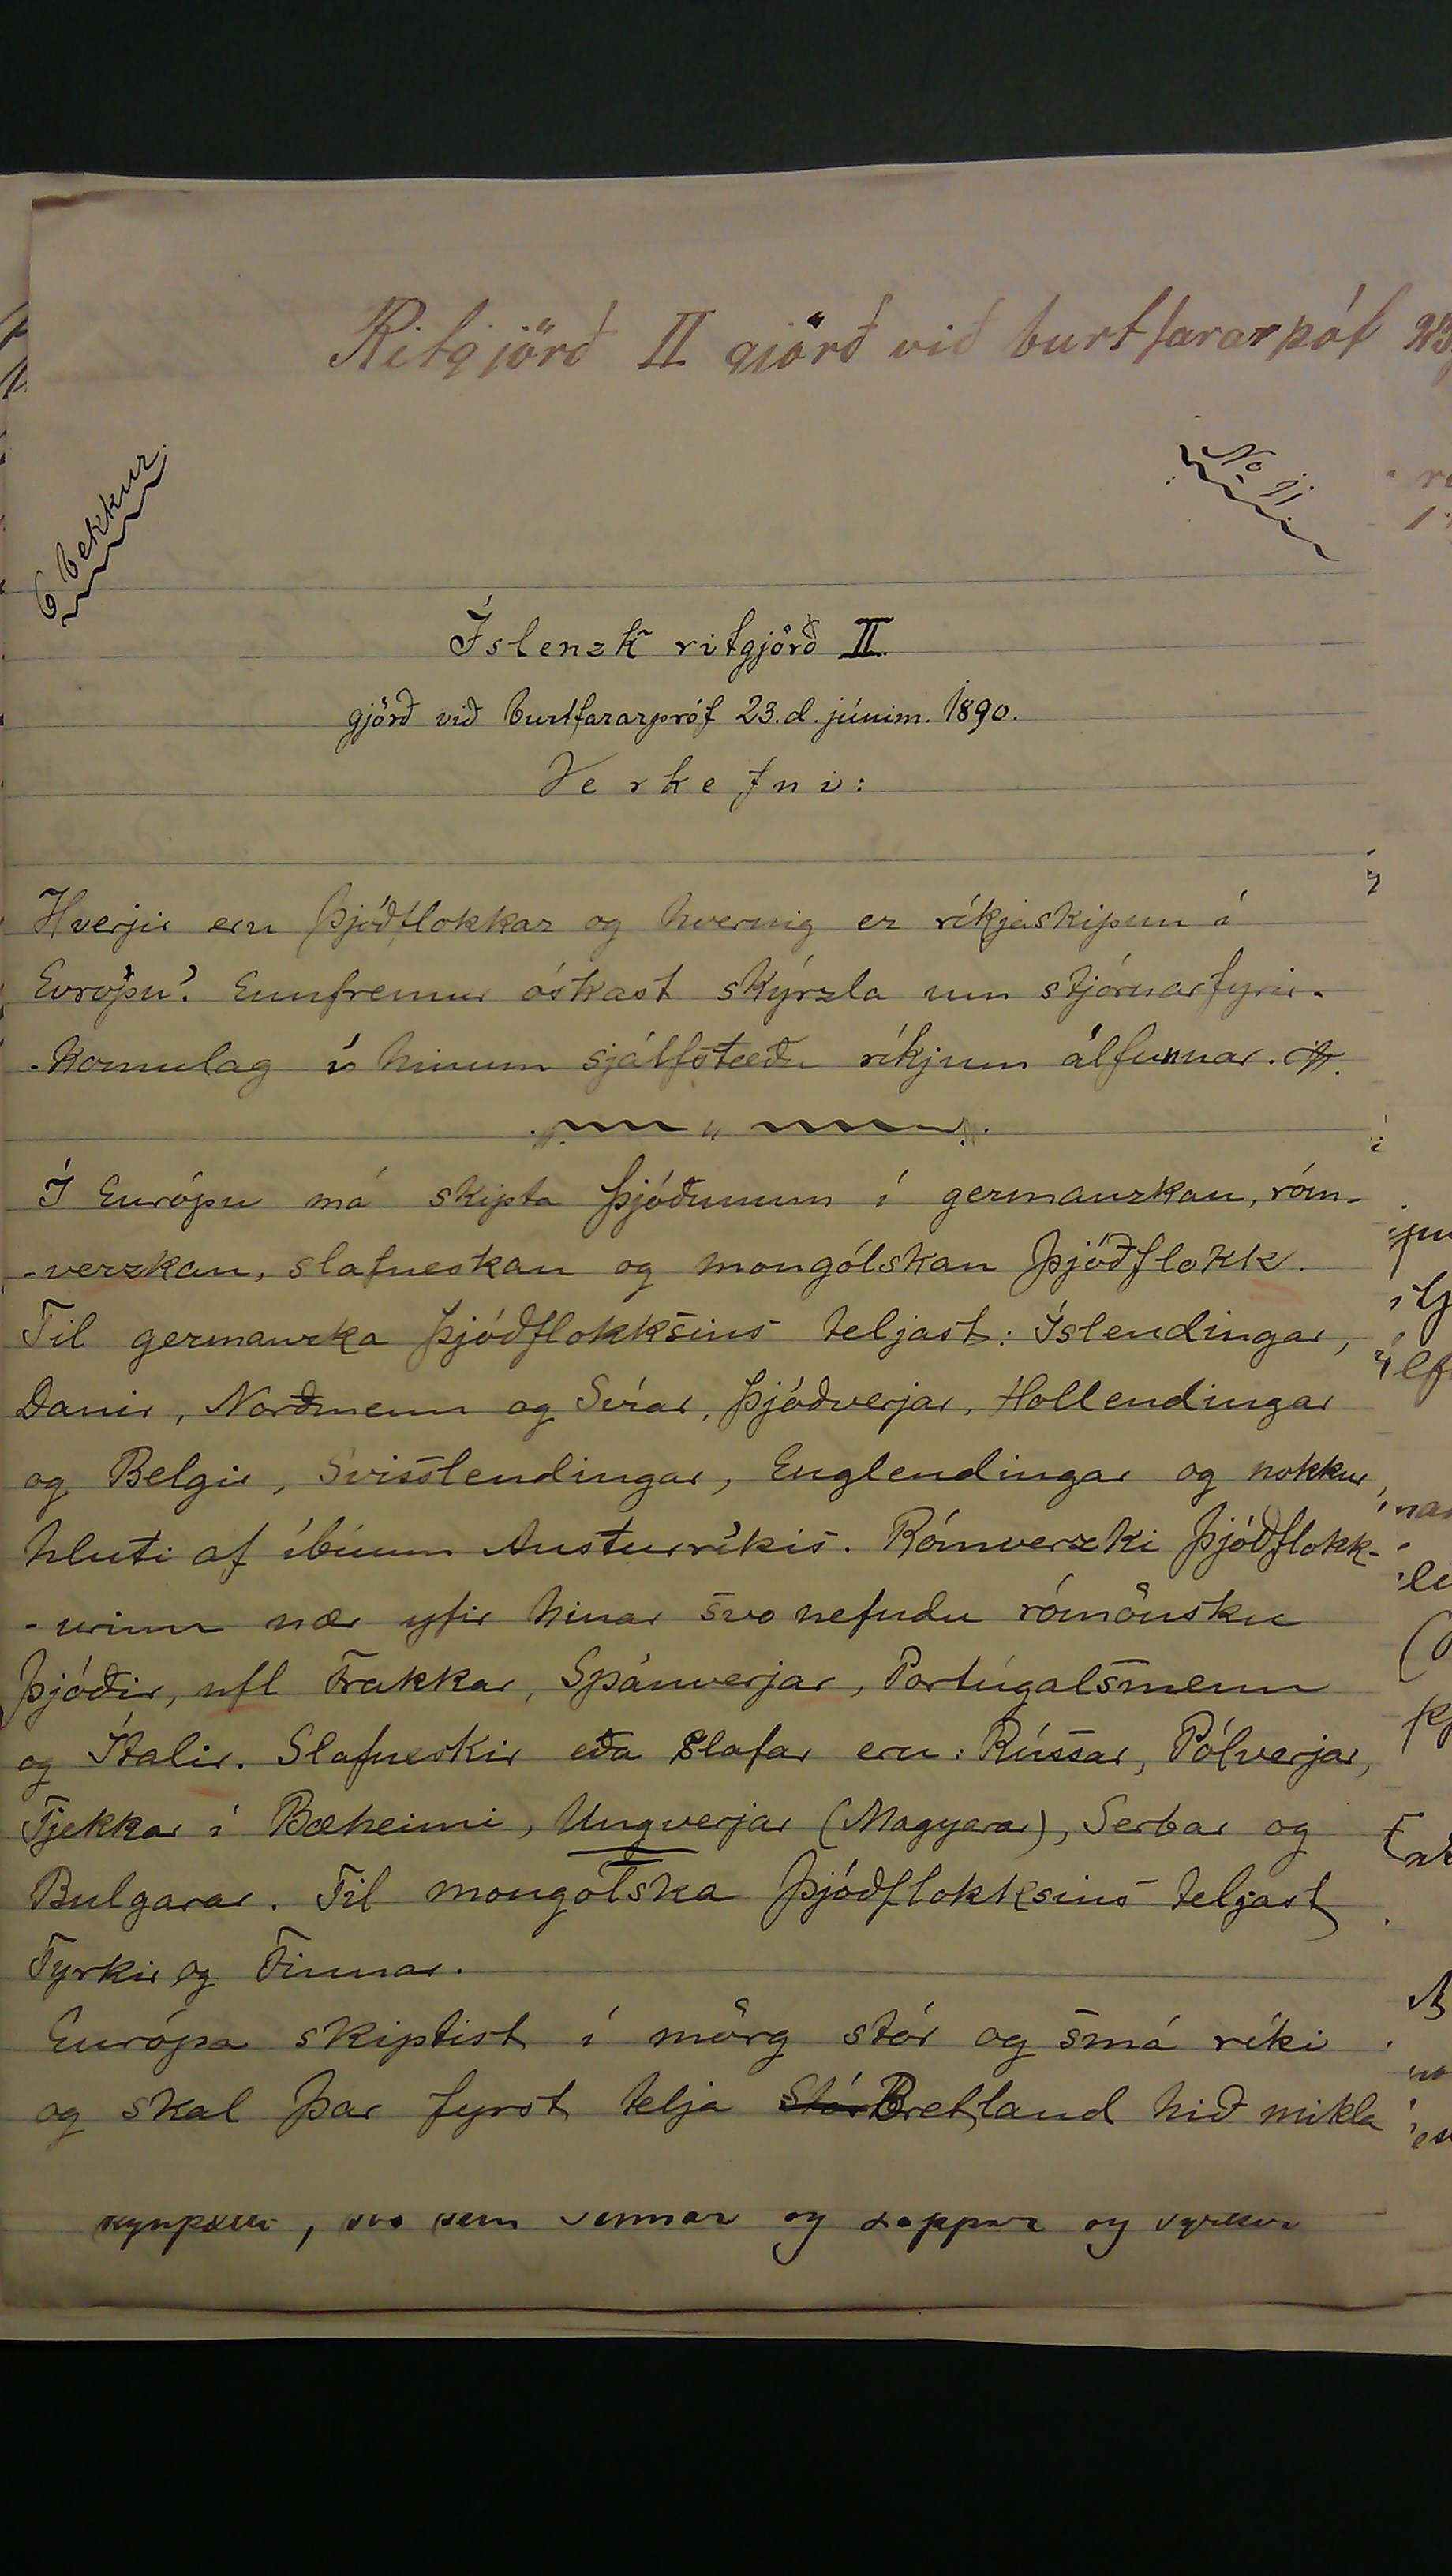 Ritgjörð II gjörð við burtfararpóf
6 bekkur.
No 11
Íslenzk ritgjörð II.
gjörð við burtfararpróf 23. d. júním. 1890.
Verkefni:
Hverjir eru þjóðflokkar og hvernig er ríkjaskipun í
Evrópu? Ennfremur óskast skýrzla um stjórnarfyrir-
-komulag í hinum sjálfstæðu ríkjum álfunnar.
Í Európu má skipta þjóðunum í germanzkan, róm-
-verzkan, slafneskan og mongólskan þjóðflokk.
Til germanzka þjóðflokksins teljast: Íslendingar,
Danir, Norðmenn og Svíar, Þjóðverjar, Hollendingar
og Belgir, Svisslendingar, Englendingar og nokkur
hluti af íbúum Austurríkis. Rómverzki þjóðflokk-
-urinn nær yfir hinar svo nefndu rómönsku
þjóðir, nfl Frakkar, Spánverjar, Portúgalsmenn
og Ítalir. Slafneskir eða Slafar eru: Rússar, Pólverjar,
Tjekkar í Bæheimi, Ungverjar (Magyarar), Serbar og
Bulgarar. Til mongólska þjóðflokksins teljast
Tyrkir og Finnar.
Európa skiptist í mörg stór og smá ríki
og skal þar fyrst telja Stór Bretland hið mikla
, svo sem Finnar og Lappar og Tyrkir